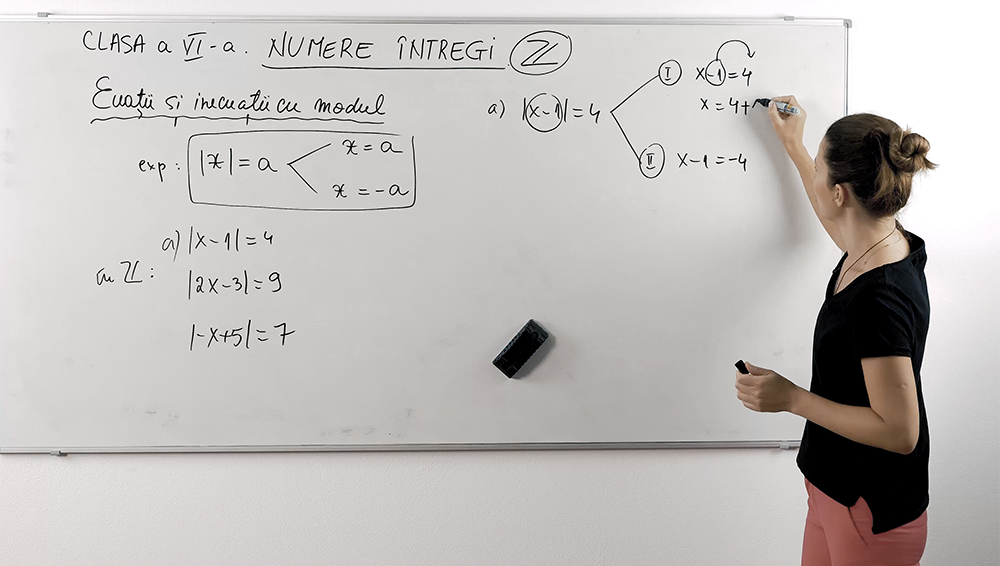 CLASA a VI-a. NUMERE ÎNTREGI ℤ
Ecuații și inecuații cu modul
exp: |x| = a
x = a
x = -a
a) |x-1| = 4
în ℤ:
|2x-3| = 9
|-x+5| = 7
a) |x-1| = 4
I x-1 = 4
x = 4+
II x-1 = -4